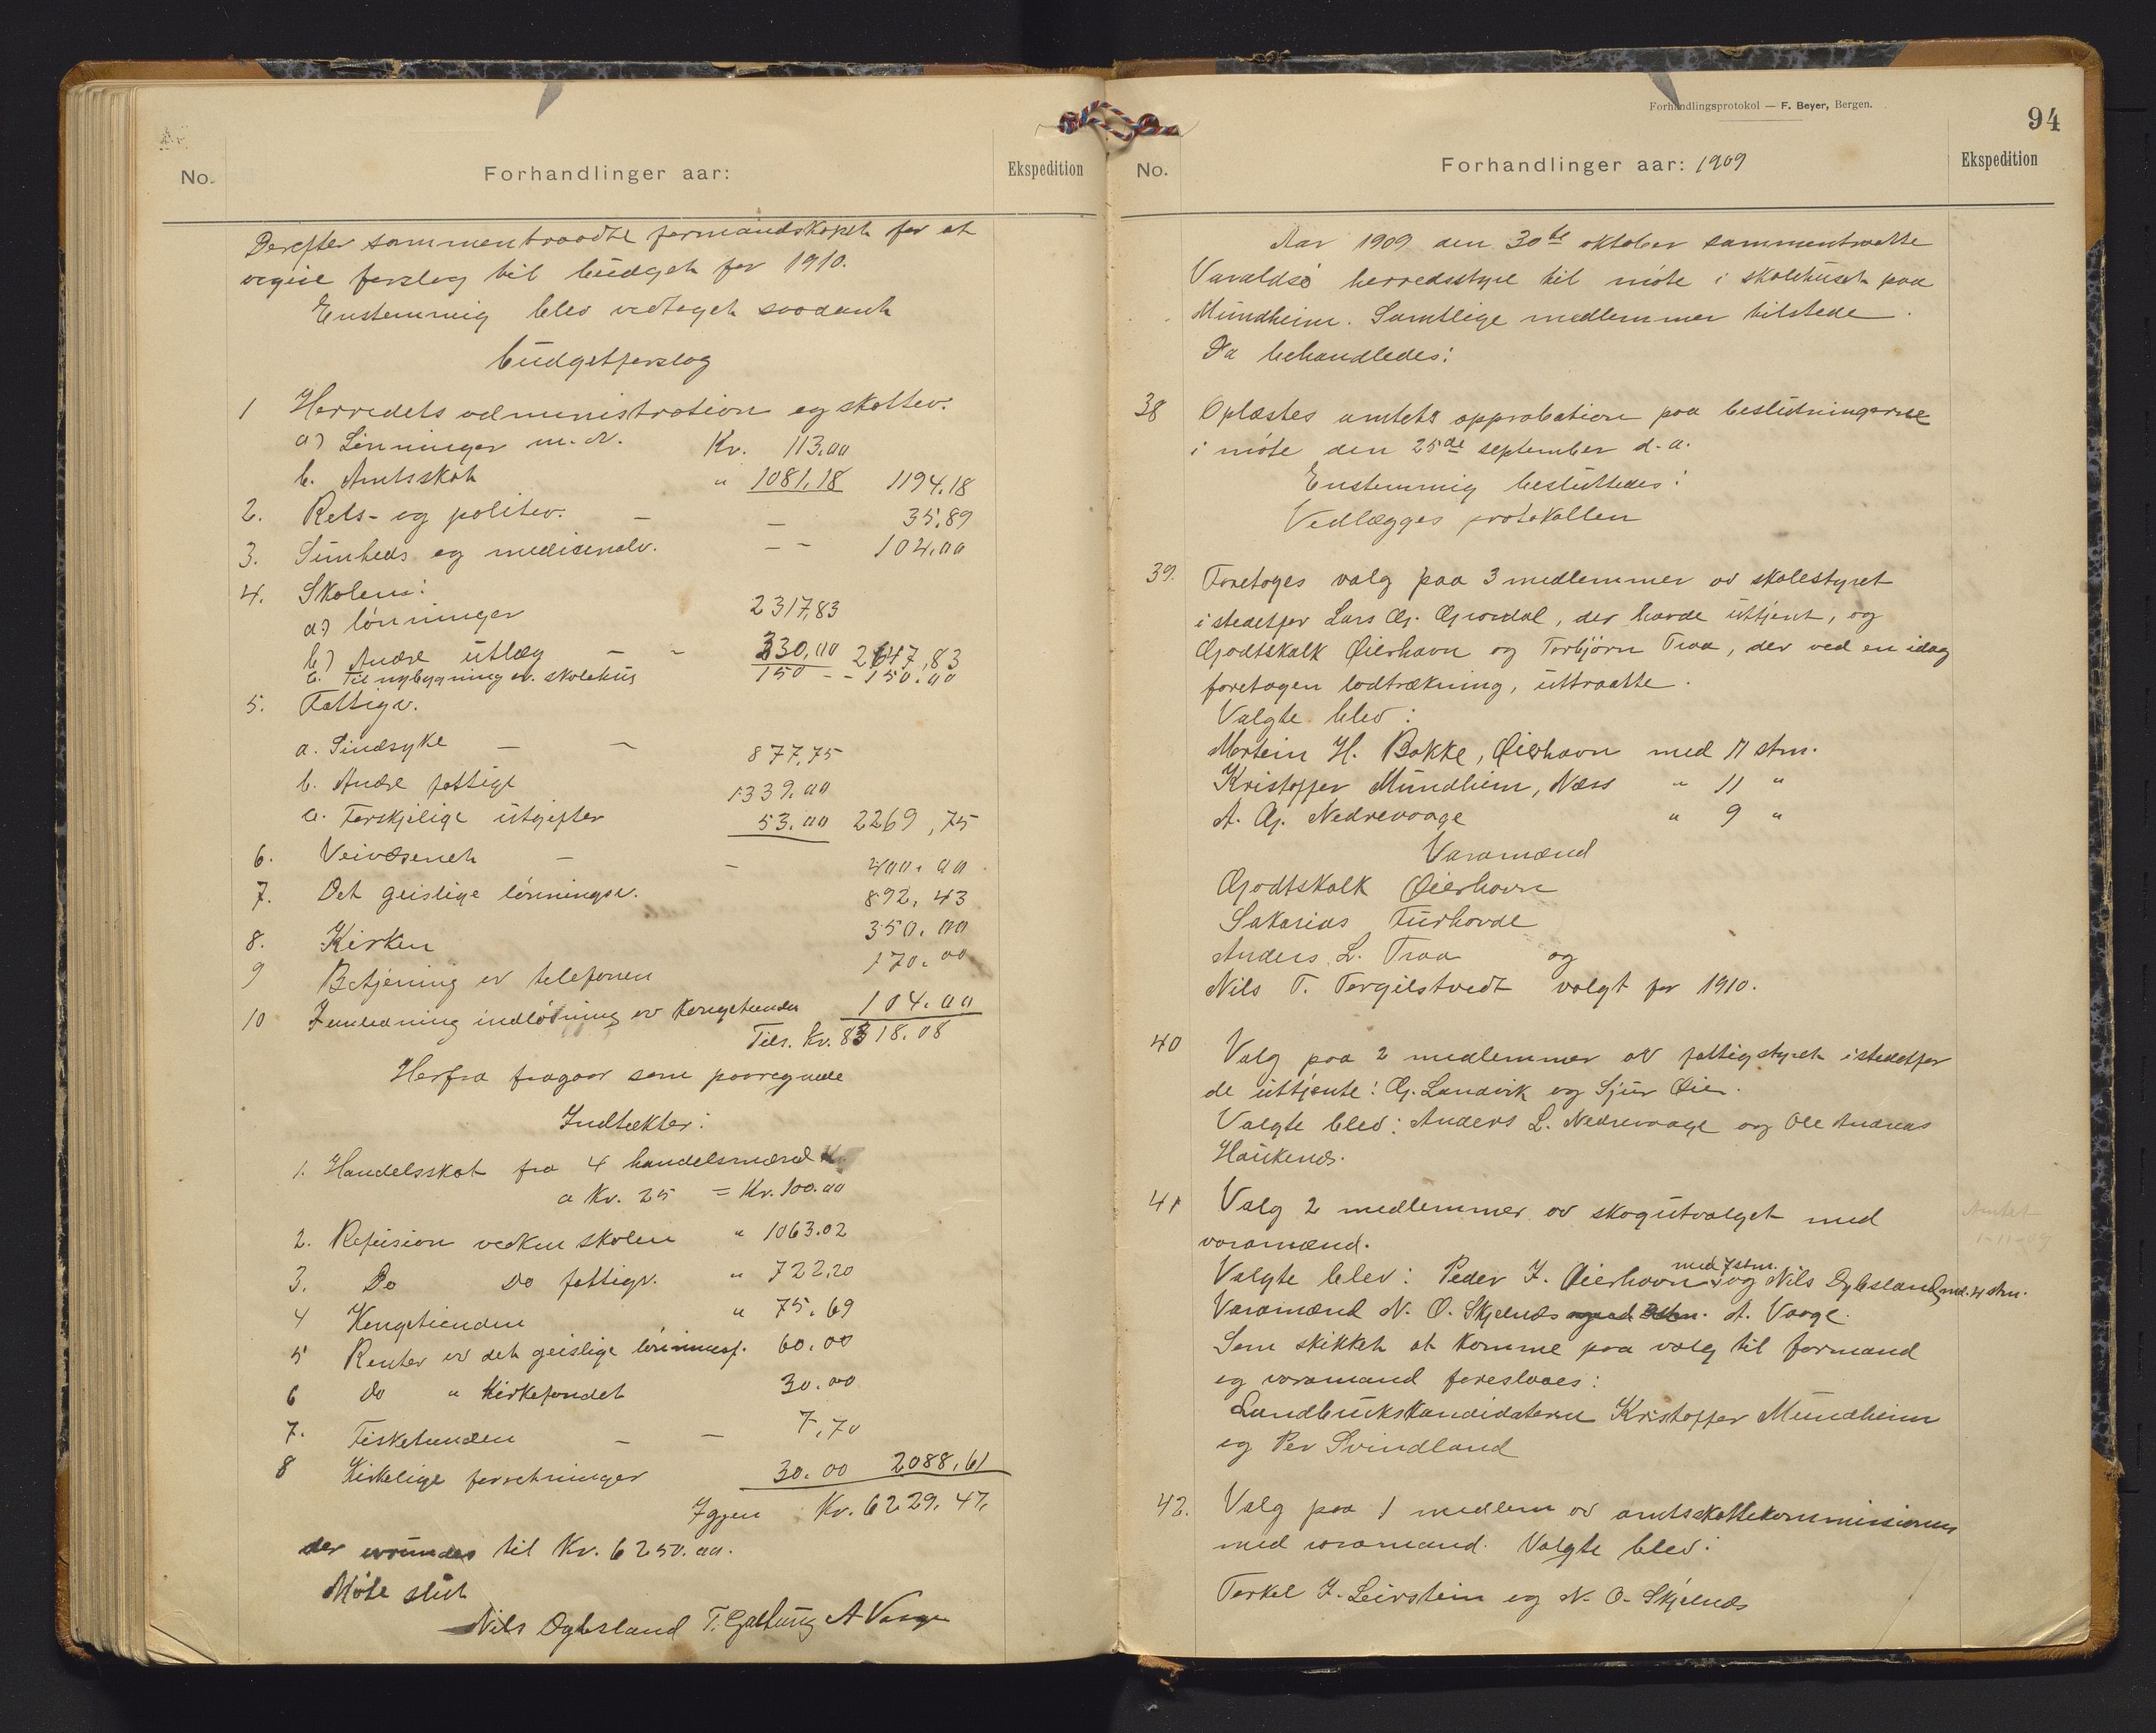 No.
Forhandlinger aar:
Ekspedition
Derefter sammentraadte formandskapet for at
avgive forslag til budget for 1910.
Enstemmig blev vedtaget saadant
budgetforslag
1 Herredets administration og skattev.
a) Lønninger m. v. Kr. 113,00
b. Amtsskat " 1081,18 1194,18
2. Rets- og politiv. — — 35,89
3. Sunheds og medisinalv. — — 104,00
4. Skolen:
a) lønninger 2317,83
b) Andre utlæg — — 330,00 2647,83
c. Til nybygning av skolehus 150 - - 150,00
5. Fattigv.
a. Sindsyke — — 877,75
b. Andre fattige 1339,00
c. Forskjelige utgifter 53,00 2269,75
6. Veivæsenet — — 400,00
7. Det geislige lønningsv. 892,43
8. Kirken 350,00
9 Betjening av telefonen 170,00
10 I anledning indløsning av Kongetienden 104,00
Tils. Kr. 8318.08
Herfra fragaar som paaregnede
Indtækter:
1. Handelsskat fra 4 handelsmænd
a Kr. 25 = Kr. 100.00
2. Refusion vedkm skolen " 1063.02
3. Do Do fattigv. " 722,20
4 Kongetienden " 75.69
5 Renter av det geislige lønningsf. 60.00
6 do " Kirkefondet 30.00
7. Fisketienden — — 7,70
8 Kirkelige forretninger 30.00 2088,61
Igjen Kr. 6229.47,
der avrundes til Kr. 6250.00.
Møte slut
Nils Dybsland T. Galtung A Vaage
Forhandlingsprotokol — F. Beyer, Bergen.
94
No.
Forhandlinger aar: 1909
Ekspedition
Aar 1909 den 30te oktober sammentraatte
Varaldsø herredsstyre til møte i skolehuset paa
Mundheim. Samtlige medlemmer tilstede.
Da behandledes:
38 Oplæstes amtets approbation paa beslutningerne
i møte den 25de september d. a.
Enstemmig besluttedes:
Vedlægges protokollen
39. Foretoges valg paa 3 medlemmer av skolestyret
istedetfor Lars G. Gravdal, der havde uttjent, og
Godtskalk Øierhavn og Torbjørn Traa, der ved en idag
foretagen lodtrækning, uttraatte.
Valgte blev:
Mortein H. Bakke, Øierhavn med 11 stm.
Kristoffer Mundheim, Næss " 11 "
A. G. Nedrevaage " 9 "
Varamænd
Godtskalk Øierhavn
Sakarias Furhovde
Anders L. Traa og
Nils T. Torgilstvedt valgt for 1910.
40 Valg paa 2 medlemmer av fattigstyret istedetfor
de uttjente: G. Landvik og Sjur Øie.
Valgte blev: Anders L. Nedrevaage og Ole Andreas
Haukenæs.
41 Valg 2 medlemmer av skogutvalget med
varamænd.
Amtet
1-11-09
med 7 stm.
Valgte blev: Peder J. Øierhavn og Nils Dybsland md. 4 stm.
Varamænd N. O. Skjelnæs A. Vaage.
Som skikket at komme paa valg til formand
og varamand foreslaaes:
Landbrukskandidaterne Kristoffer Mundheim
og Per Svindland
42. Valg paa 1 medlem av amtsskattekommissionen
med varamand. Valgte blev:
Torkel J. Leirstein og N. O. Skjelnæs